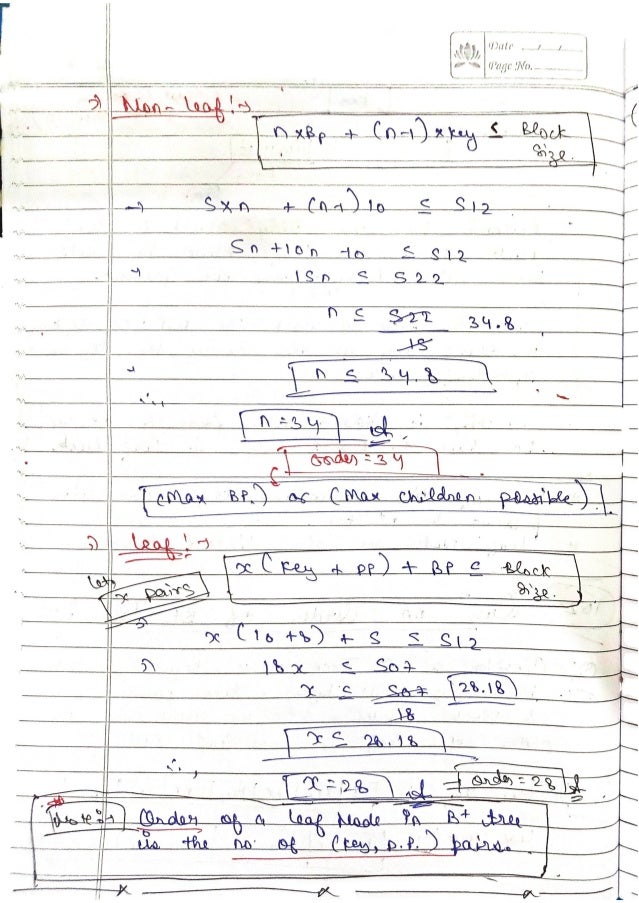 Date / /
Page No.
Non-leaf:→
n×Bp + (n-1)×key ≤ Block size.
→ 5×n + (n-1)10 ≤ 512
5n +10n -10 ≤ 512
15n ≤ 522
n ≤ 522/15 34.8
n ≤ 34.8
∴ n=34
order=34
(Max BP.) or (Max children possible).
leaf:→
x (key + DP) + BP ≤ Block size.
let x pairs
x (10 +8) + 5 ≤ 512
18x ≤ 507
x ≤ 507/18 28.18
x ≤ 28.18
∴, x=28 order=28
Note:→ Order of a leaf Node in B+ tree
is the no. of (key, D.P.) pairs.
x x x